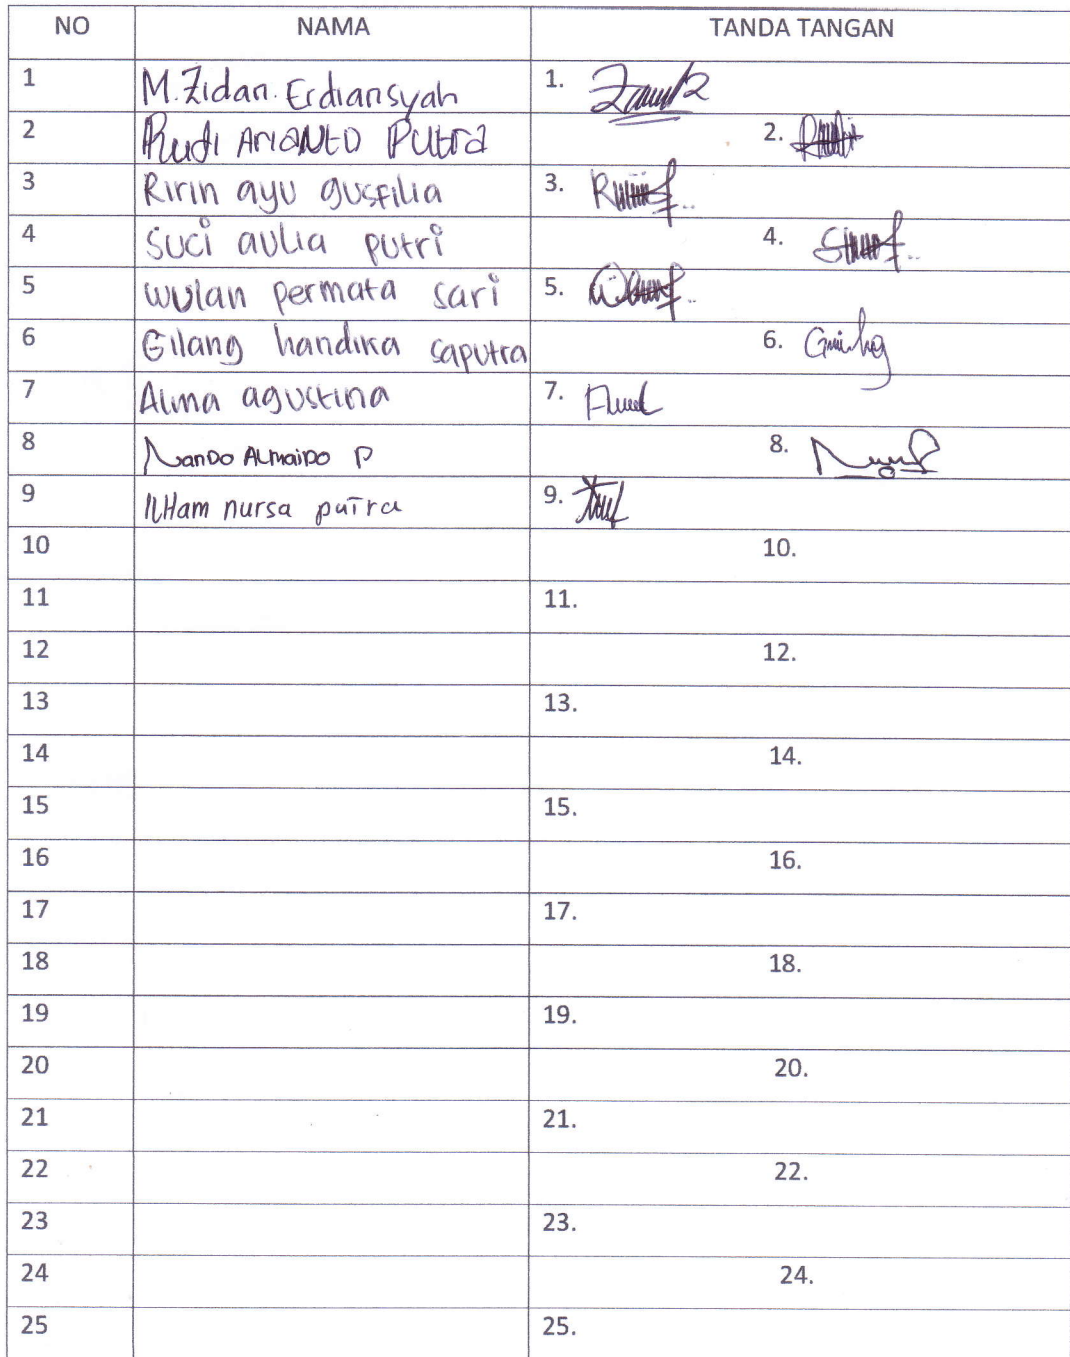 NO NAMA TANDA TANGAN
1 M. Zidan. Erdiansyah 1.
2 Rudi ARIANTO PUtra 2.
3 Ririn ayu gusfilia 3.
4 Suci aulia putri 4.
5 wulan permata sari 5.
6 Gilang handika saputra 6.
7 Alma agustina 7.
8 NanDo ALmaiDo P 8.
9 ILHam nursa putra 9.
10 10.
11 11.
12 12.
13 13.
14 14.
15 15.
16 16.
17 17.
18 18.
19 19.
20 20.
21 21.
22 22.
23 23.
24 24.
25 25.